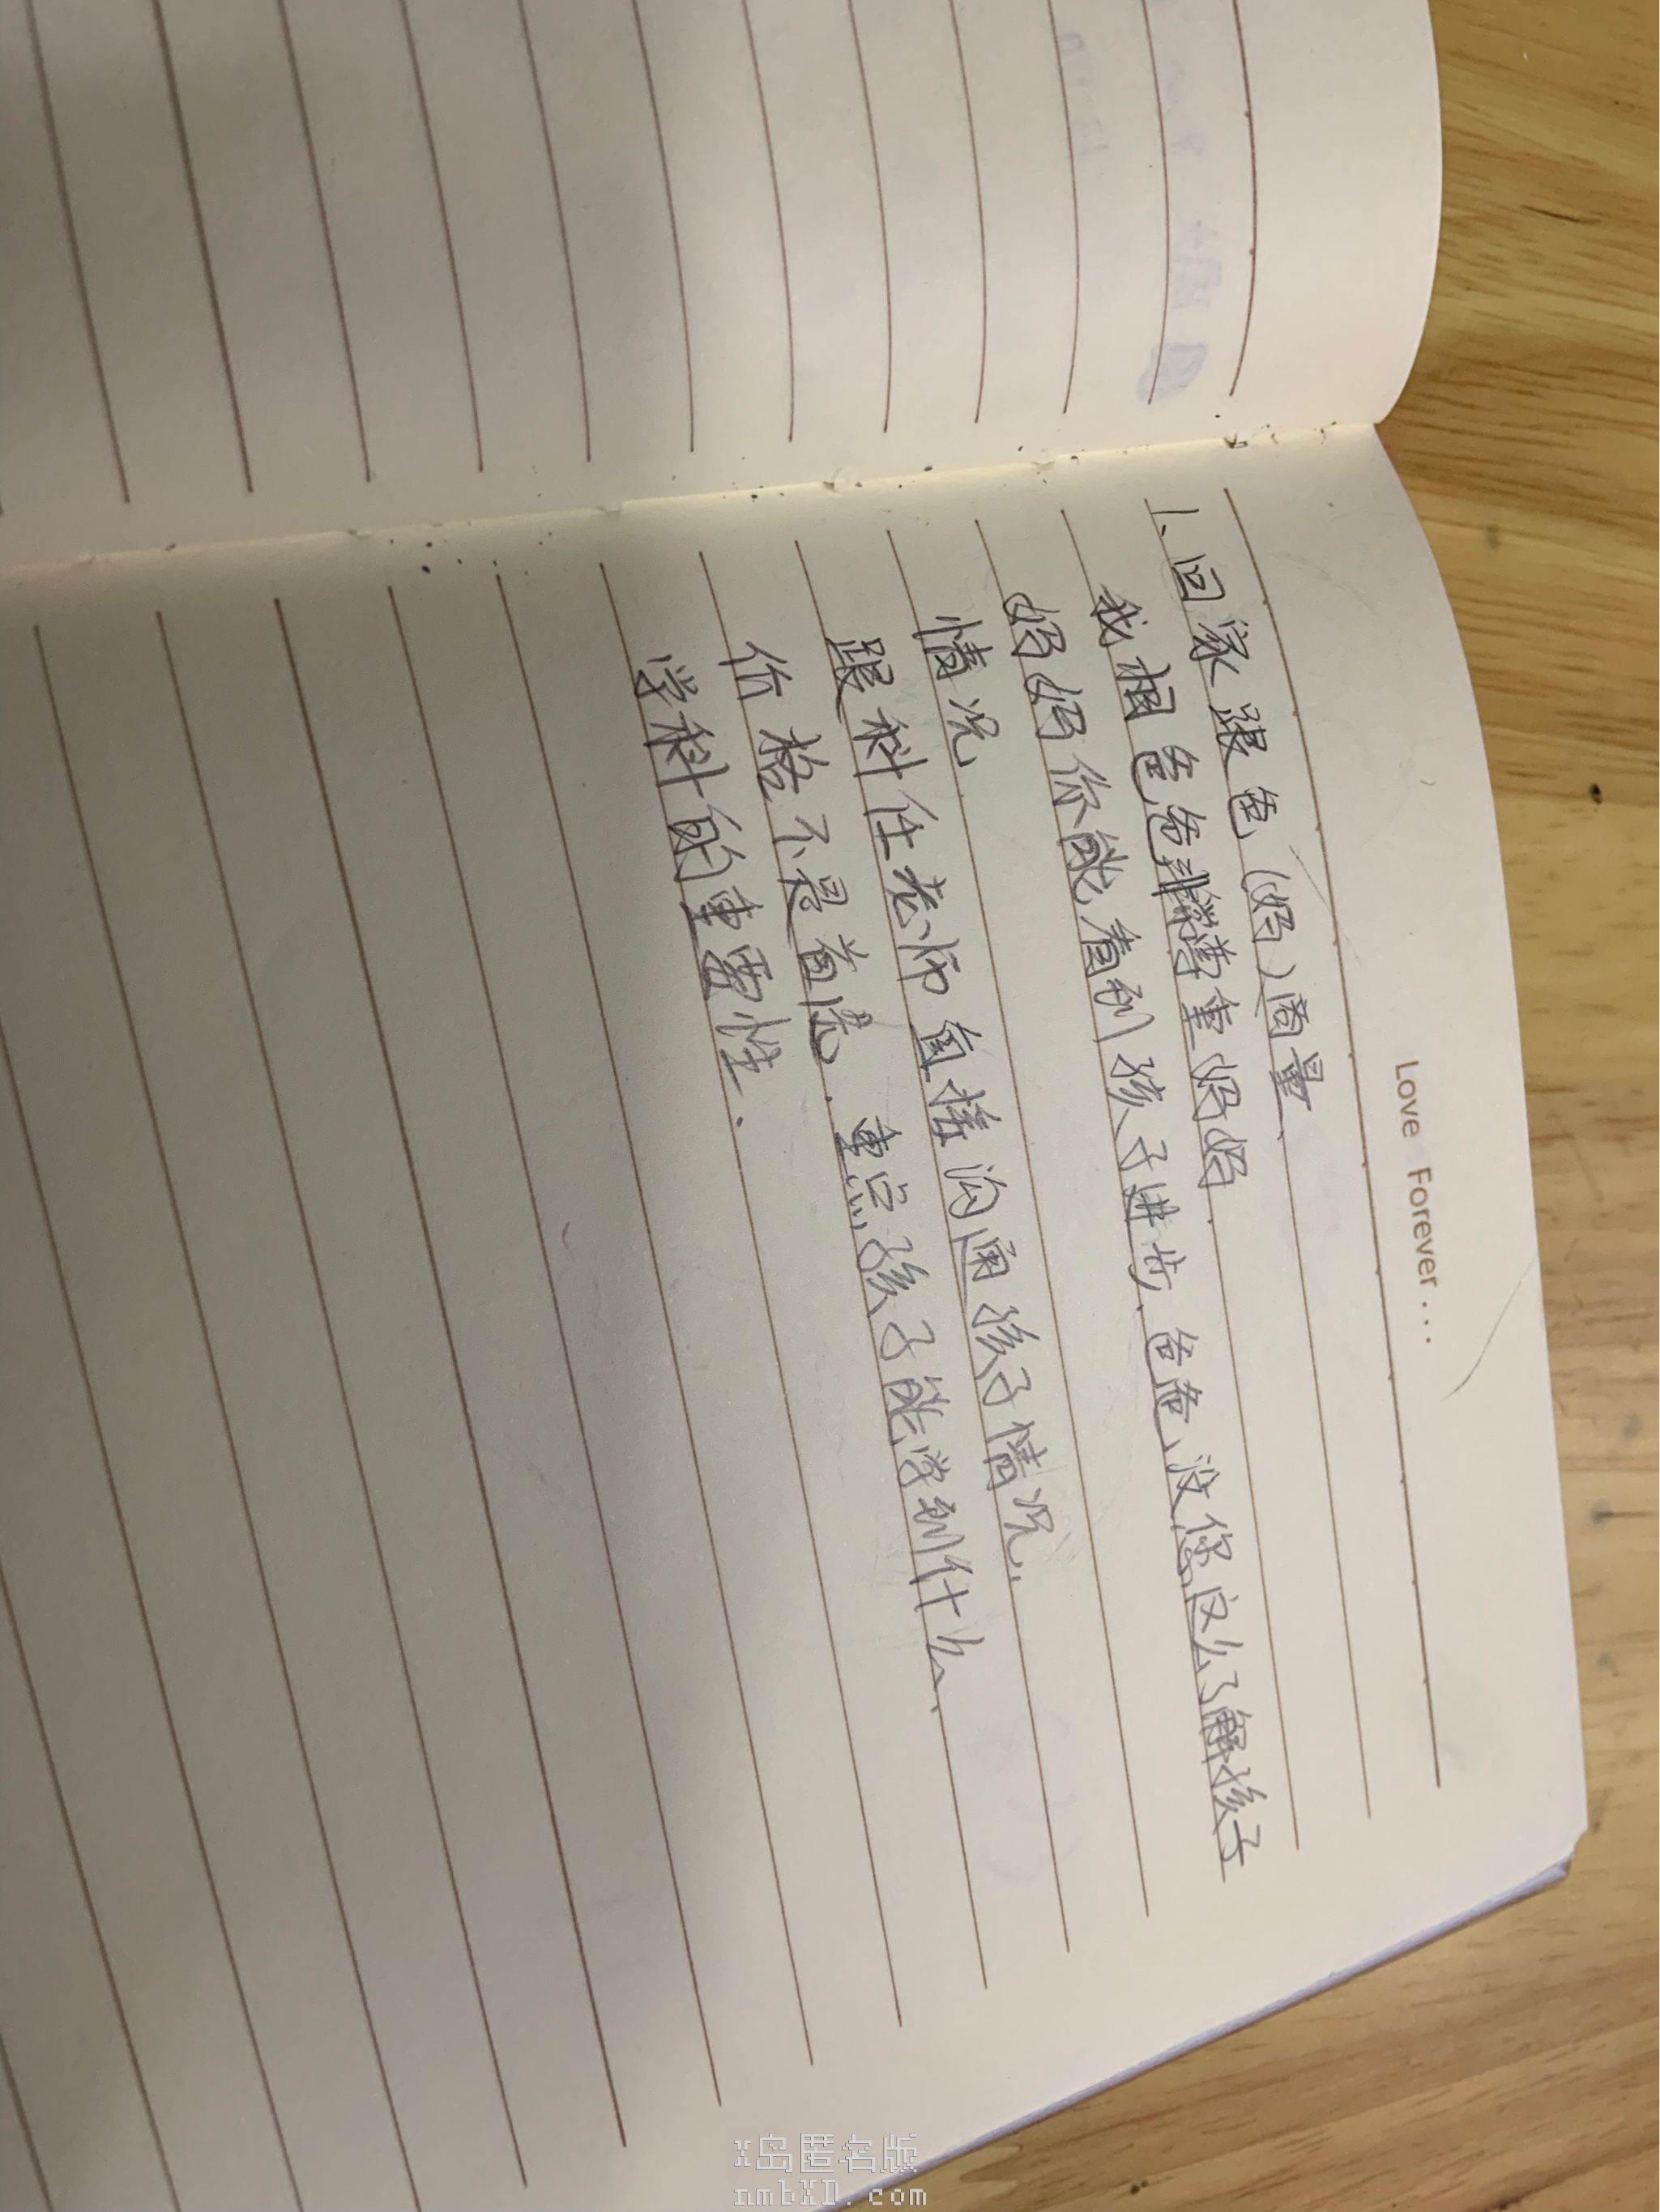 Love Forever....
1、回家跟爸(妈)商量、
我相爸爸爸非常尊重妈妈.
妈妈你能看到孩子进步、爸爸、没您这么了解孩子
情况.
跟科任老师直接沟通孩子情况.
价格不是首虑. 重点孩子能学到什么、
学科的重要性.
X岛匿名版
nmbXD.com